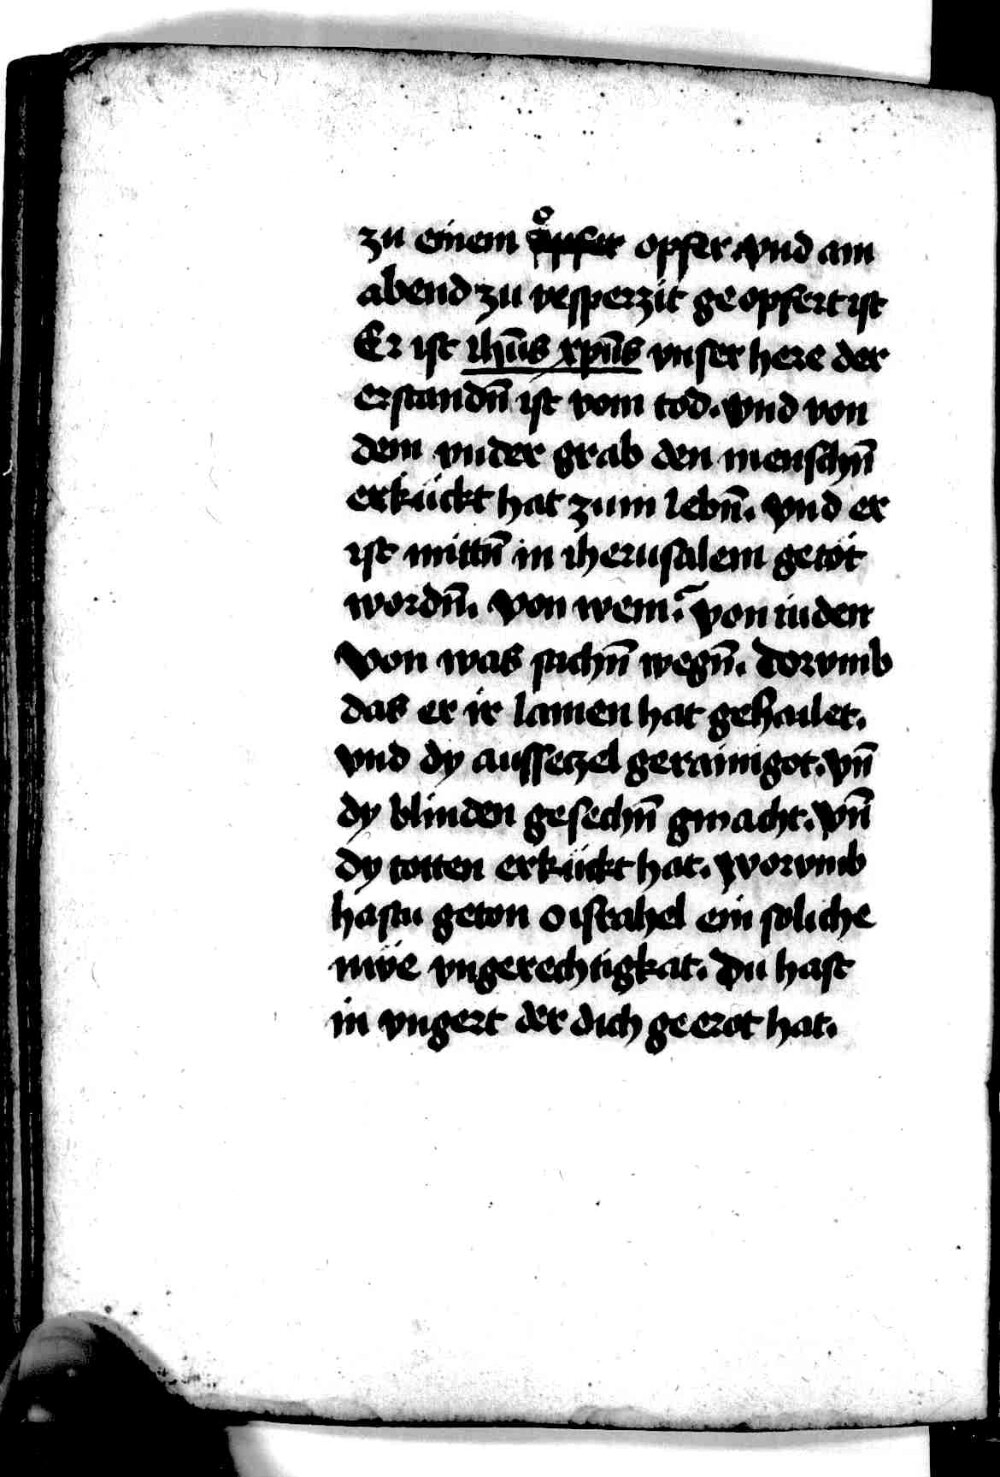 zu einem opfer opfer vnd am
abend zu vesperzit geopfert ist
Er ist ihūs xpūs vnser here der
erstandn̄ ist vom tod. vnd von
dem vnder grab den menschn̄
erkückt hat zum lebn̄. vnd er
ist mittn̄ in iherusalem getöt
wordn̄. von wem. von iuden
von was sachn̄ wegn̄. dorvmb
das er ir lamen hat gehailet.
vnd dy aussetzel gerainigot. vn̄
dy blinden gesechn̄ gmacht. vn̄
dy totten erkückt hat. worvmb
hastu geton o israhel ein soliche
nwe vngerechtigkat. Du hast
in vngert der dich geerot hat.